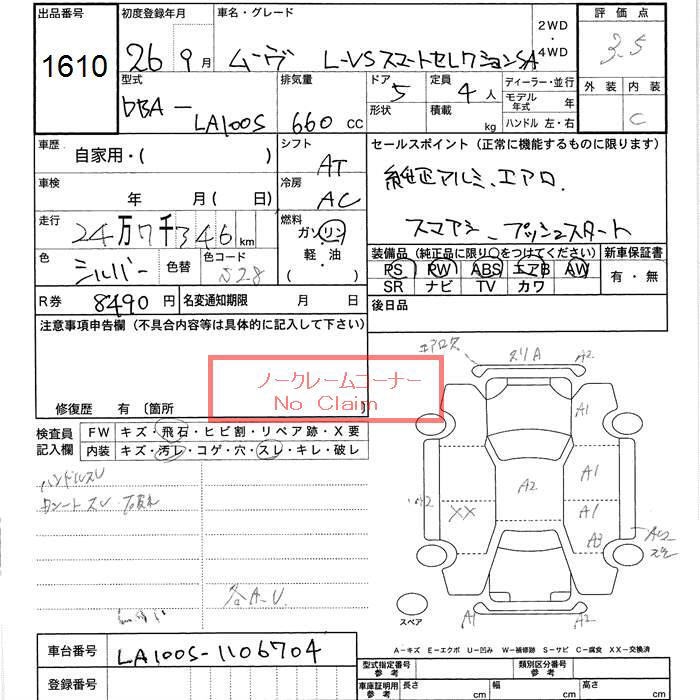 出品番号
1610
初度登録年月
26 9月
車名・グレード
ムーヴ L-VSスマートセレクションSA
2WD
・
4WD
評価点
3.5
外装 内装
C
型式
DBA-
LA100S
排気量
660 cc
ドア 5
形状
定員 4人
積載 kg
ディーラー・並行
モデル年式 年
ハンドル 左・右
車歴 自家用・( )
シフト AT
セールスポイント(正常に機能するものに限ります)
純正アルミ、エアロ、
スマアシ、プッシュスタート
車検 年 月( 日)
冷房 AC
走行 24万7千346km
燃料
ガソリン
軽・油
( )
色 シルバー 色替 色コード S28
装備品(純正品に限り○をつけてください)
PS PW ABS エアB AW
SR ナビ TV カワ
新車保証書
有・無
R券 8490円 名変通知期限 月 日
後日品
注意事項申告欄(不具合内容等は具体的に記入して下さい)
ノークレームコーナー
No Claim
修復歴 有〔箇所
検査員記入欄
FW キズ・飛石・ヒビ割・リペア跡・X要
内装 キズ・汚レ・コゲ・穴・スレ・キレ・破レ
ハンドルスレ
各A・U
エアロ欠 スリA A2
A1
A2 A1
XX A1
A2 A3
A1 A2
スペア
A-キズ E-エクボ U-凹み W-補修跡 S-サビ C-腐食 XX-交換済
車台番号 LA100S-1106704
登録番号
型式指定番号 参考
類別区分番号 参考
車庫証明用 参考 長さ cm 幅 cm 高さ cm